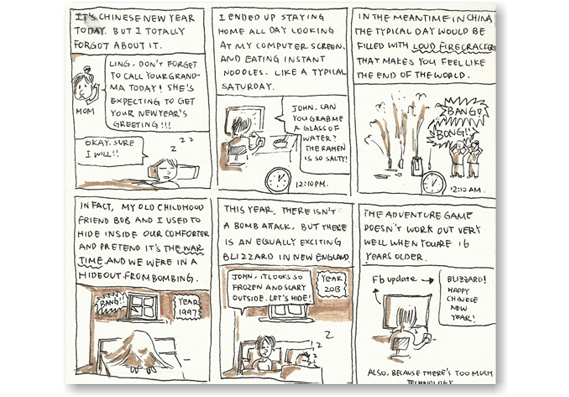 IT'S CHINESE NEW YEAR
TODAY. BUT I TOTALLY
FORGOT ABOUT IT.
LING, DON'T FORGET
TO CALL YOUR GRAND-
MA TODAY! SHE'S
EXPECTING TO GET
YOUR NEW YEAR'S
GREETING!!!
MOM
OKAY. SURE
I WILL!!
z z z
I ENDED UP STAYING
HOME ALL DAY LOOKING
AT MY COMPUTER SCREEN,
AND EATING INSTANT
NOODLES. LIKE A TYPICAL
SATURDAY.
JOHN, CAN
YOU GRAB ME
A GLASS OF
WATER?
THE RAMEN
IS SO SALTY!
12:10 PM.
IN THE MEANTIME IN CHINA
THE TYPICAL DAY WOULD BE
FILLED WITH LOUD FIRECRACKERS
THAT MAKES YOU FEEL LIKE
THE END OF THE WORLD.
BANG!
BONG!!
12:10 AM.
IN FACT, MY OLD CHILDHOOD
FRIEND BOB AND I USED TO
HIDE INSIDE OUR COMFORTER
AND PRETEND IT'S THE WAR
TIME, AND WE WERE IN A
HIDEOUT FROM BOMBING.
BANG!!
YEAR
1997
THIS YEAR, THERE ISN'T
A BOMB ATTACK, BUT THERE
IS AN EQUALLY EXCITING
BLIZZARD IN NEW ENGLAND
JOHN, IT LOOKS SO
FROZEN AND SCARY
OUTSIDE. LET'S HIDE!
YEAR
2013
z z
THE ADVENTURE GAME
DOESN'T WORK OUT VERY
WELL WHEN YOU'RE 16
YEARS OLDER.
Fb update
BLIZZARD!
HAPPY
CHINESE
NEW
YEAR!
ALSO, BECAUSE THERE'S TOO MUCH
TECHNOLOGY